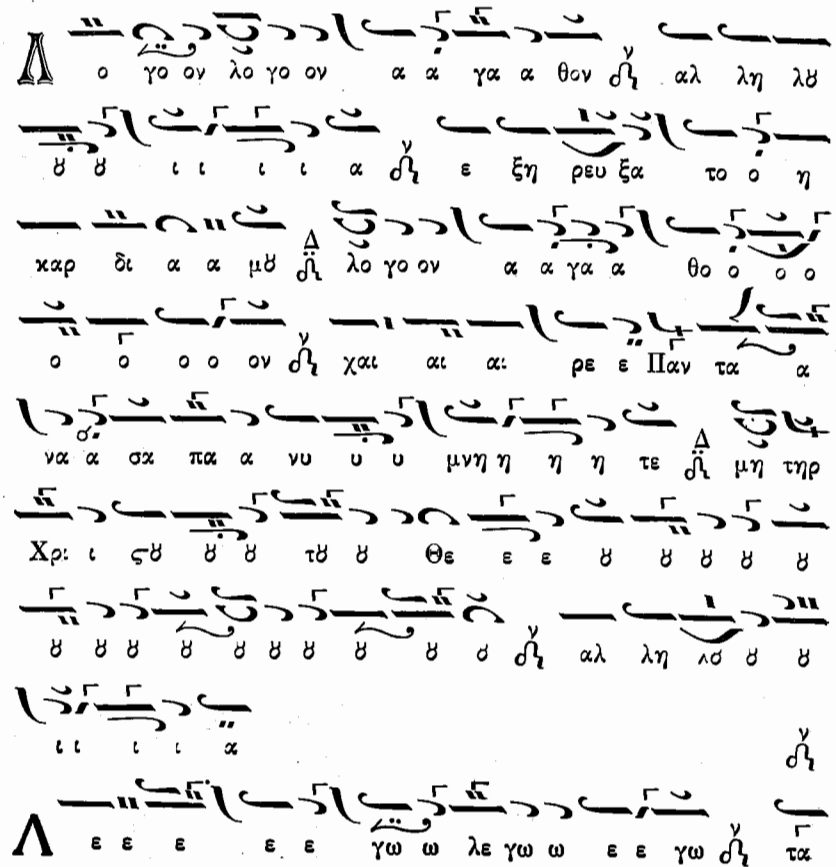 Λ ο γο ον λο γο ον α α γα α θον αλ λη λȣ
ȣ ȣ ι ι ι ι α ε ξη ρευ ξα το ο η
καρ δι α α μȣ λο γο ον α α γα α θο ο ο ο
ο ο ο ο ον χαι αι αι ρε ε Παν τα α
να α σα πα α νυ υ υ μνη η η η τε μη τηρ
Χρι ι ϛȣ ȣ ȣ τȣ ȣ Θε ε ε ȣ ȣ ȣ ȣ ȣ
ȣ ȣ ȣ ȣ ȣ ȣ ȣ ȣ ȣ ȣ αλ λη λȣ ȣ ȣ
ι ι ι ι α
Λ ε ε ε ε ε γω ω λε γω ω ε ε γω τα